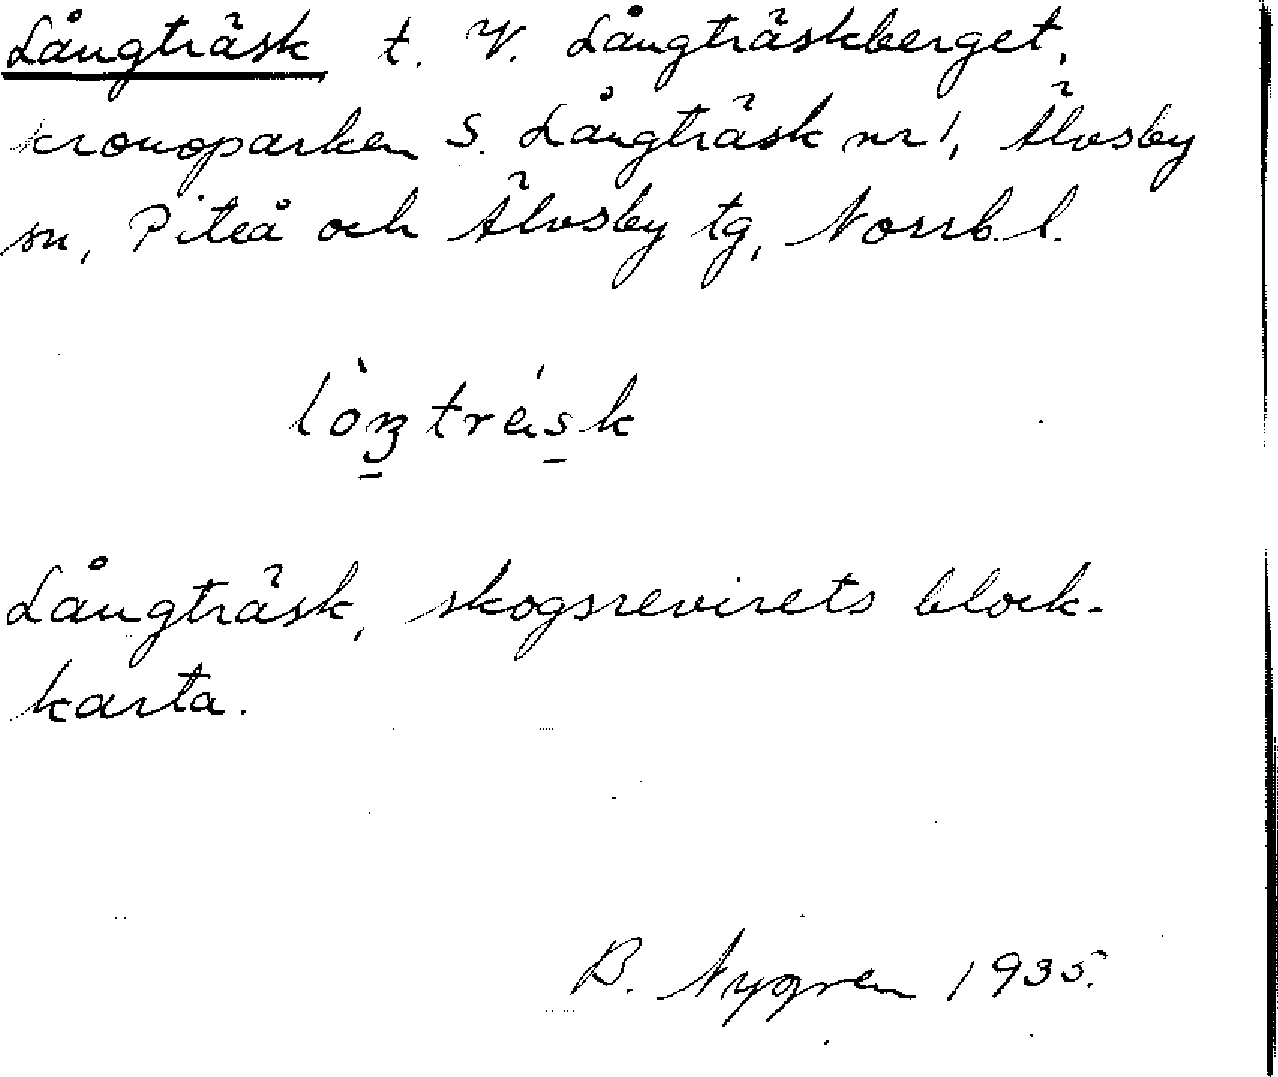 Långträsk t. V. Långträskberget,
kronoparken S. Långträsk nr 1, Älvsby
sn, Piteå och Älvsby tg, Norrb. l.
Långträsk, skogsrevirets block-
karta.
B. Nygren 1935.